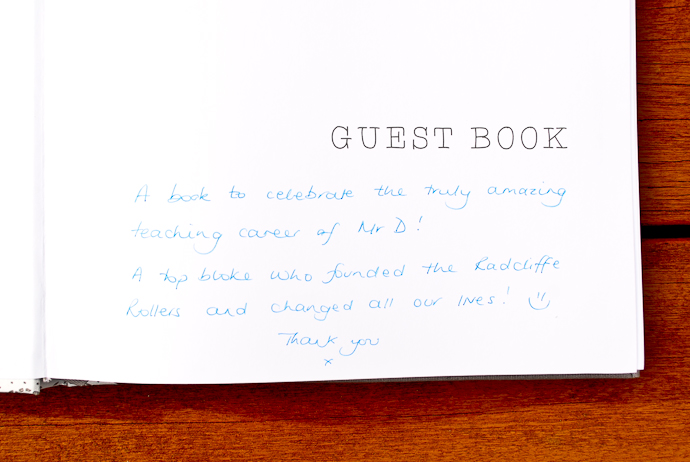 GUEST BOOK
A book to celebrate the truly amazing
teaching career of Mr D!
A top bloke who founded the Radcliffe
Rollers and changed all our lives! :)
Thank you
x